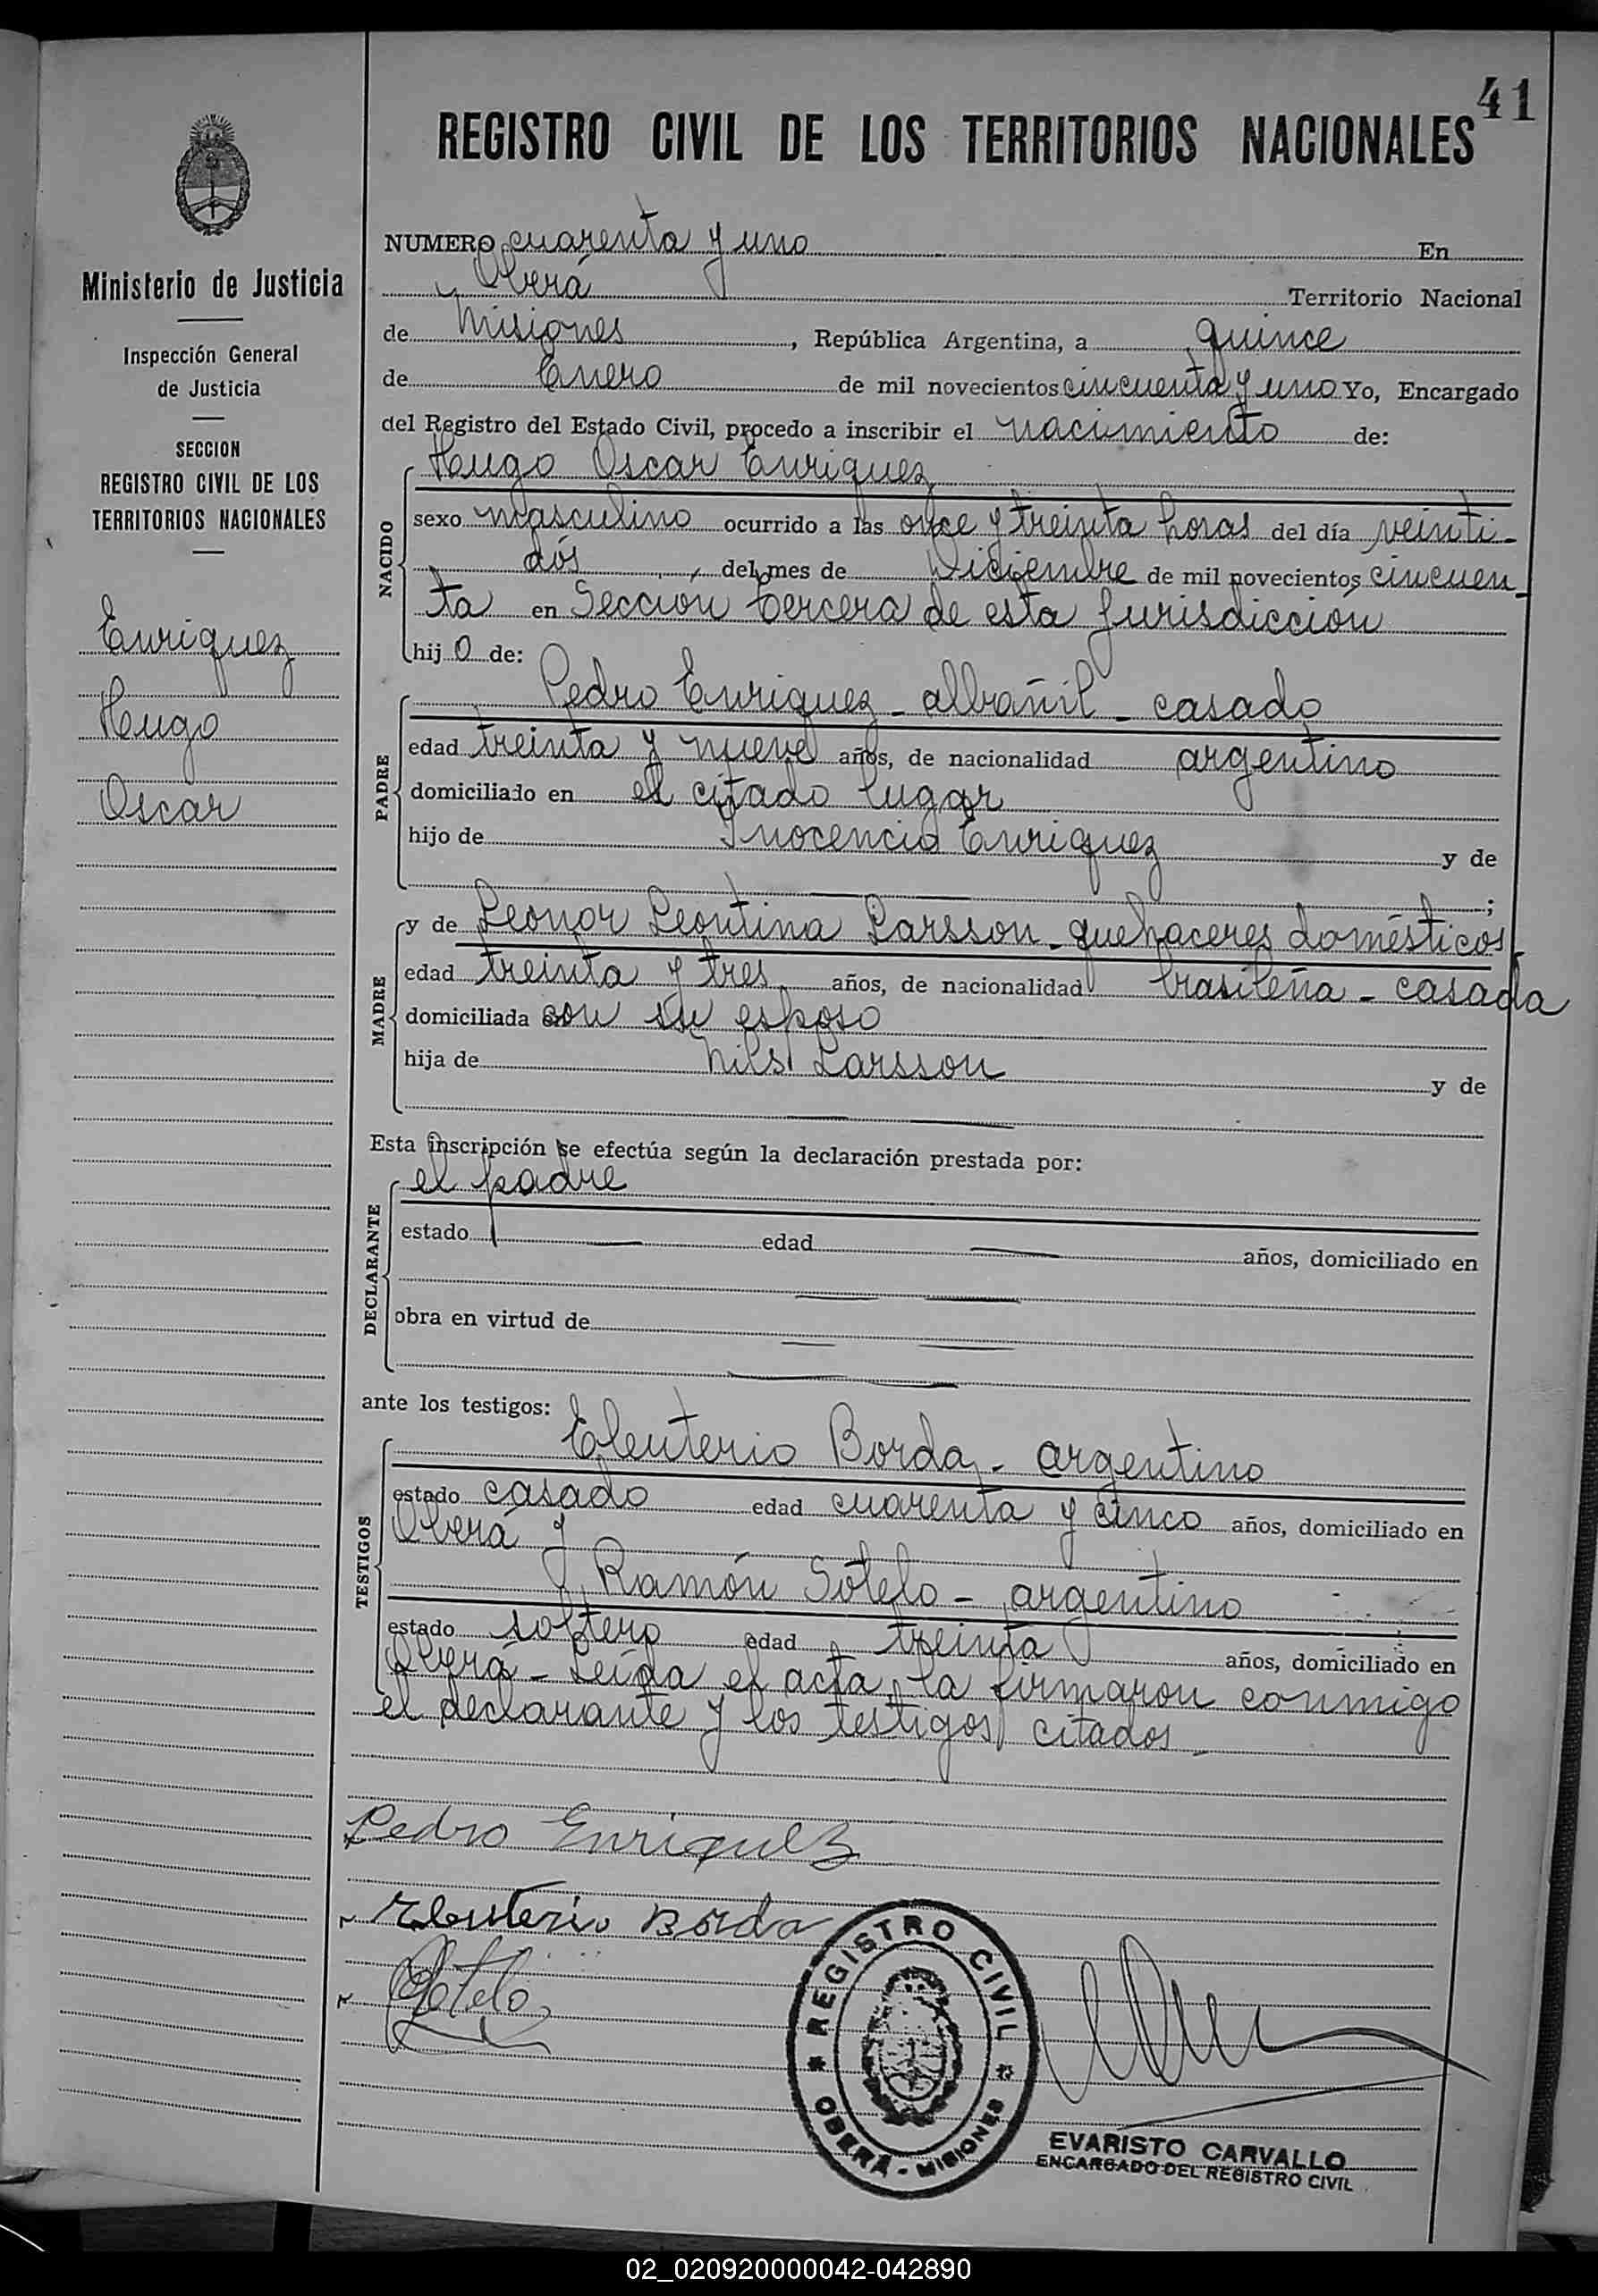 41
REGISTRO CIVIL DE LOS TERRITORIOS NACIONALES
Ministerio de Justicia
Inspección General
de Justicia
SECCION
REGISTRO CIVIL DE LOS
TERRITORIOS NACIONALES
Enriquez
Hugo
Oscar
NUMERO cuarenta y uno En
Oberá Territorio Nacional
de Misiones, República Argentina, a quince
de Enero de mil novecientos cincuenta y uno Yo, Encargado
del Registro del Estado Civil, procedo a inscribir el nacimiento de:
Hugo Oscar Enriquez
NACIDO
sexo masculino ocurrido a las once y treinta horas del día veinti-
dós, del mes de Diciembre de mil novecientos cincuen-
ta en Sección Tercera de esta Jurisdicción
hijo de:
Pedro Enriquez - albañil - casado
PADRE
edad treinta y nueve años, de nacionalidad argentino
domiciliado en el citado lugar
hijo de Inocencio Enriquez y de
;
y de Leonor Leontina Larsson - quehaceres domésticos
MADRE
edad treinta y tres años, de nacionalidad brasileña - casada
domiciliada con su esposo
hija de Nils Larsson y de
Esta inscripción se efectúa según la declaración prestada por:
el padre
DECLARANTE
estado edad años, domiciliado en
obra en virtud de
ante los testigos:
Eleuterio Borda - argentino
TESTIGOS
estado casado edad cuarenta y cinco años, domiciliado en
Oberá y
Ramón Sotelo - argentino
estado soltero edad treinta años, domiciliado en
Oberá - Leída el acta, la firmaron conmigo
el declarante y los testigos citados -
Pedro Enriquez
Eleuterio Borda
Sotelo
REGISTRO CIVIL
OBERÁ - MISIONES
EVARISTO CARVALLO
ENCARGADO DEL REGISTRO CIVIL
02_020920000042-042890